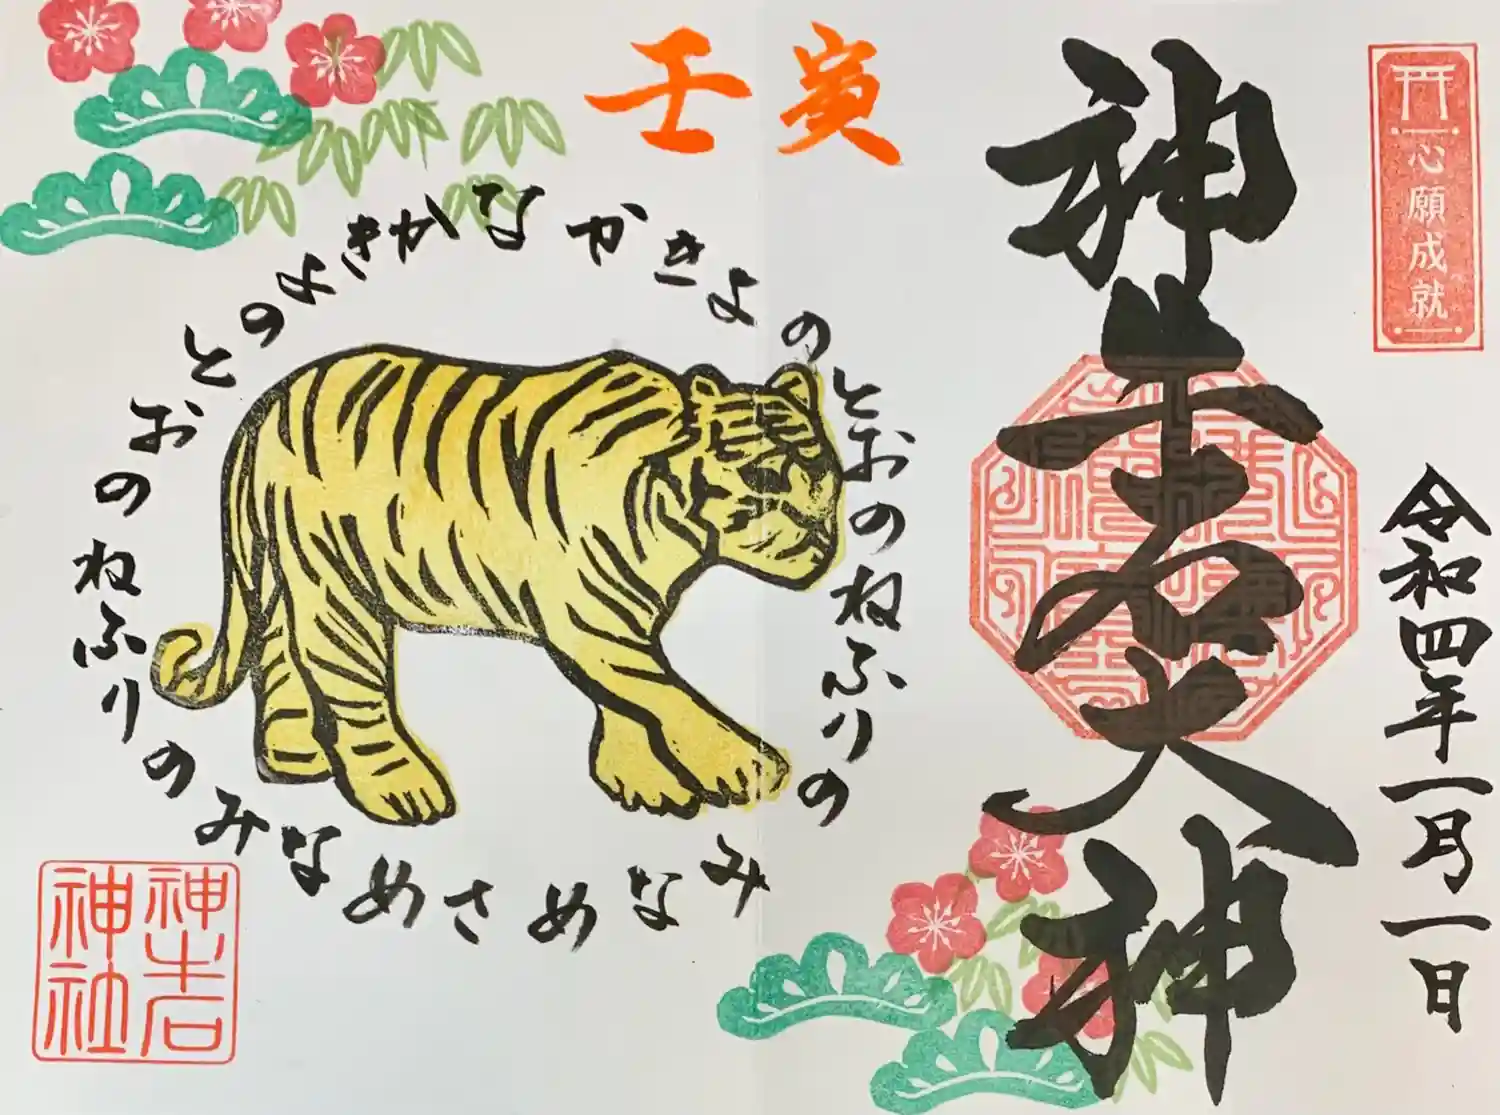 心願成就
神牛石大神
令和四年一月一日
壬寅
なかきよのとおのねふりのみなめさめなみのりふねのおとのよきか
神牛石
神社